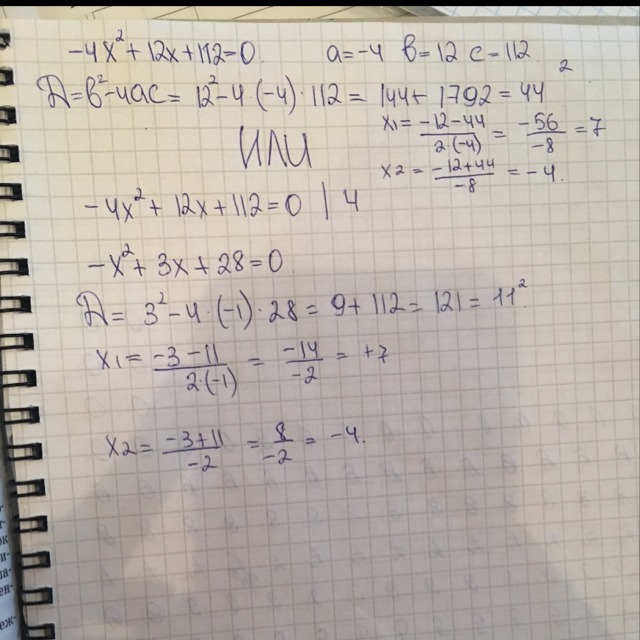 -4x² + 12x + 112 = 0.  a = -4  в = 12  с = 112
Д = в² - 4ас = 12² - 4 (-4) · 112 = 144 + 1792 = 44²
x₁ = (-12 - 44)/(2·(-4)) = -56/-8 = 7
x₂ = (-12 + 44)/-8 = -4.
ИЛИ
-4x² + 12x + 112 = 0 | 4
-x² + 3x + 28 = 0
Д = 3² - 4 · (-1) · 28 = 9 + 112 = 121 = 11²
x₁ = (-3 - 11)/(2·(-1)) = -14/-2 = +7
x₂ = (-3 + 11)/-2 = 8/-2 = -4.